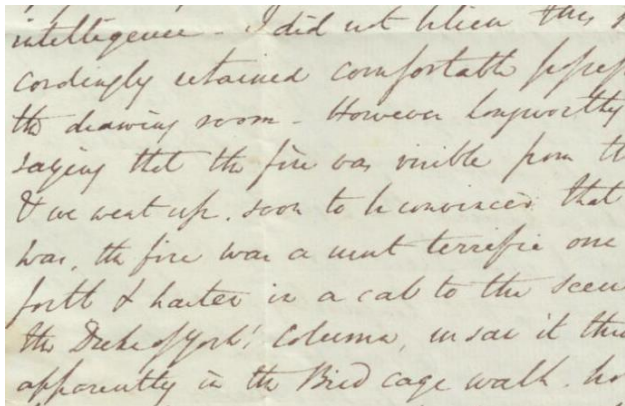 intelligence - I did not believe this
cordingly retained comfortable possess
the drawing room - However Longworthy
saying that the fire was visible from th
& we went up. soon to be convinced that
was, the fire was a most terrific one
forth & hasten in a cab to the scene
the Duke of York's Column, we saw it thr
apparently in the Bird cage walk. ho